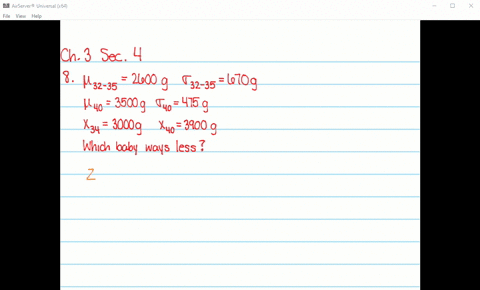 AirServer® Universal (x64)
File View Help
Ch. 3 Sec. 4
8. μ₃₂₋₃₅ = 2600 g σ₃₂₋₃₅ = 670 g
μ₄₀ = 3500 g σ₄₀ = 475 g
X₃₄ = 3000 g X₄₀ = 3900 g
Which baby ways less?
Z